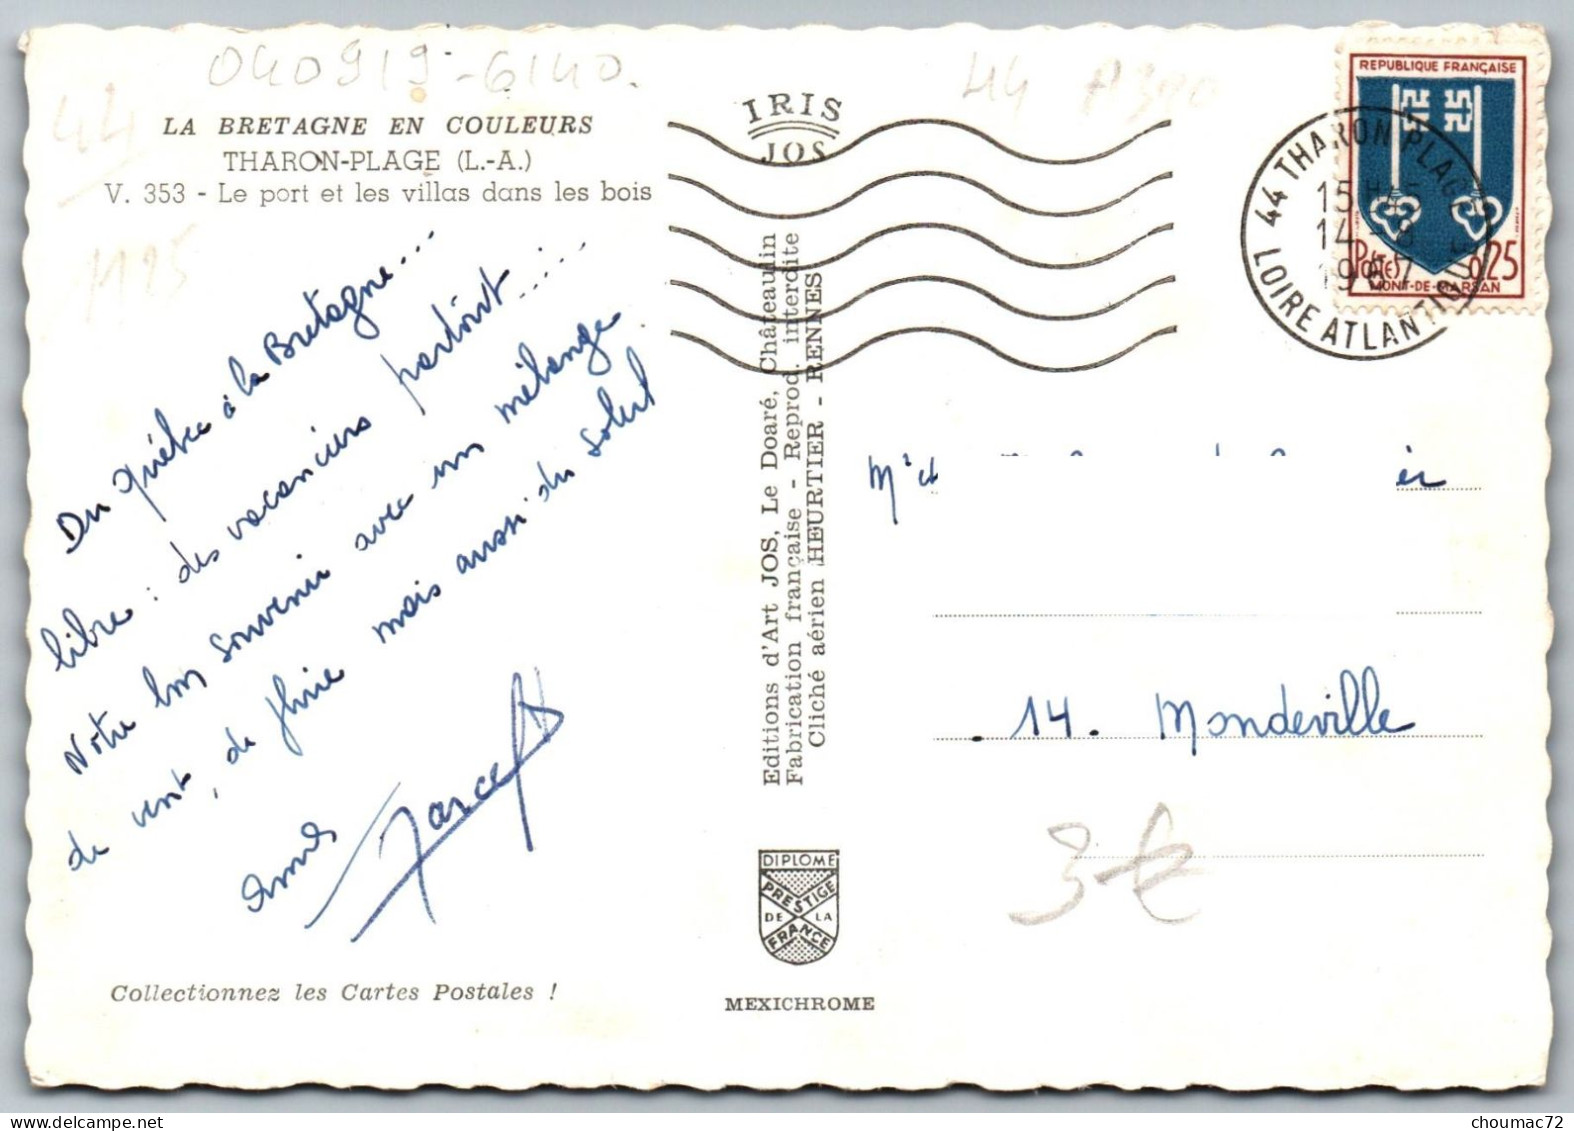 040919-6140.
44
44 A390
1125
LA BRETAGNE EN COULEURS
THARON-PLAGE (L.-A.)
V. 353 - Le port et les villas dans les bois
Du Québec à la Bretagne...
libre : des vacanciers partout....
Notre bon souvenir avec un mélange
de vent, de pluie mais aussi du soleil
Annie Marcel
Collectionnez les Cartes Postales !
IRIS
JOS
Editions d'Art JOS, Le Doaré, Châteaulin
Fabrication française - Reprod. interdite
Cliché aérien HEURTIER - RENNES
DIPLOME
PRESTIGE
DE LA
FRANCE
MEXICHROME
REPUBLIQUE FRANÇAISE
Postes 0,25
MONT-DE-MARSAN
44 THARON PLAGE
15H45
14-8
1967
LOIRE ATLANTIQUE
er
14. Mondeville
3€
choumac72